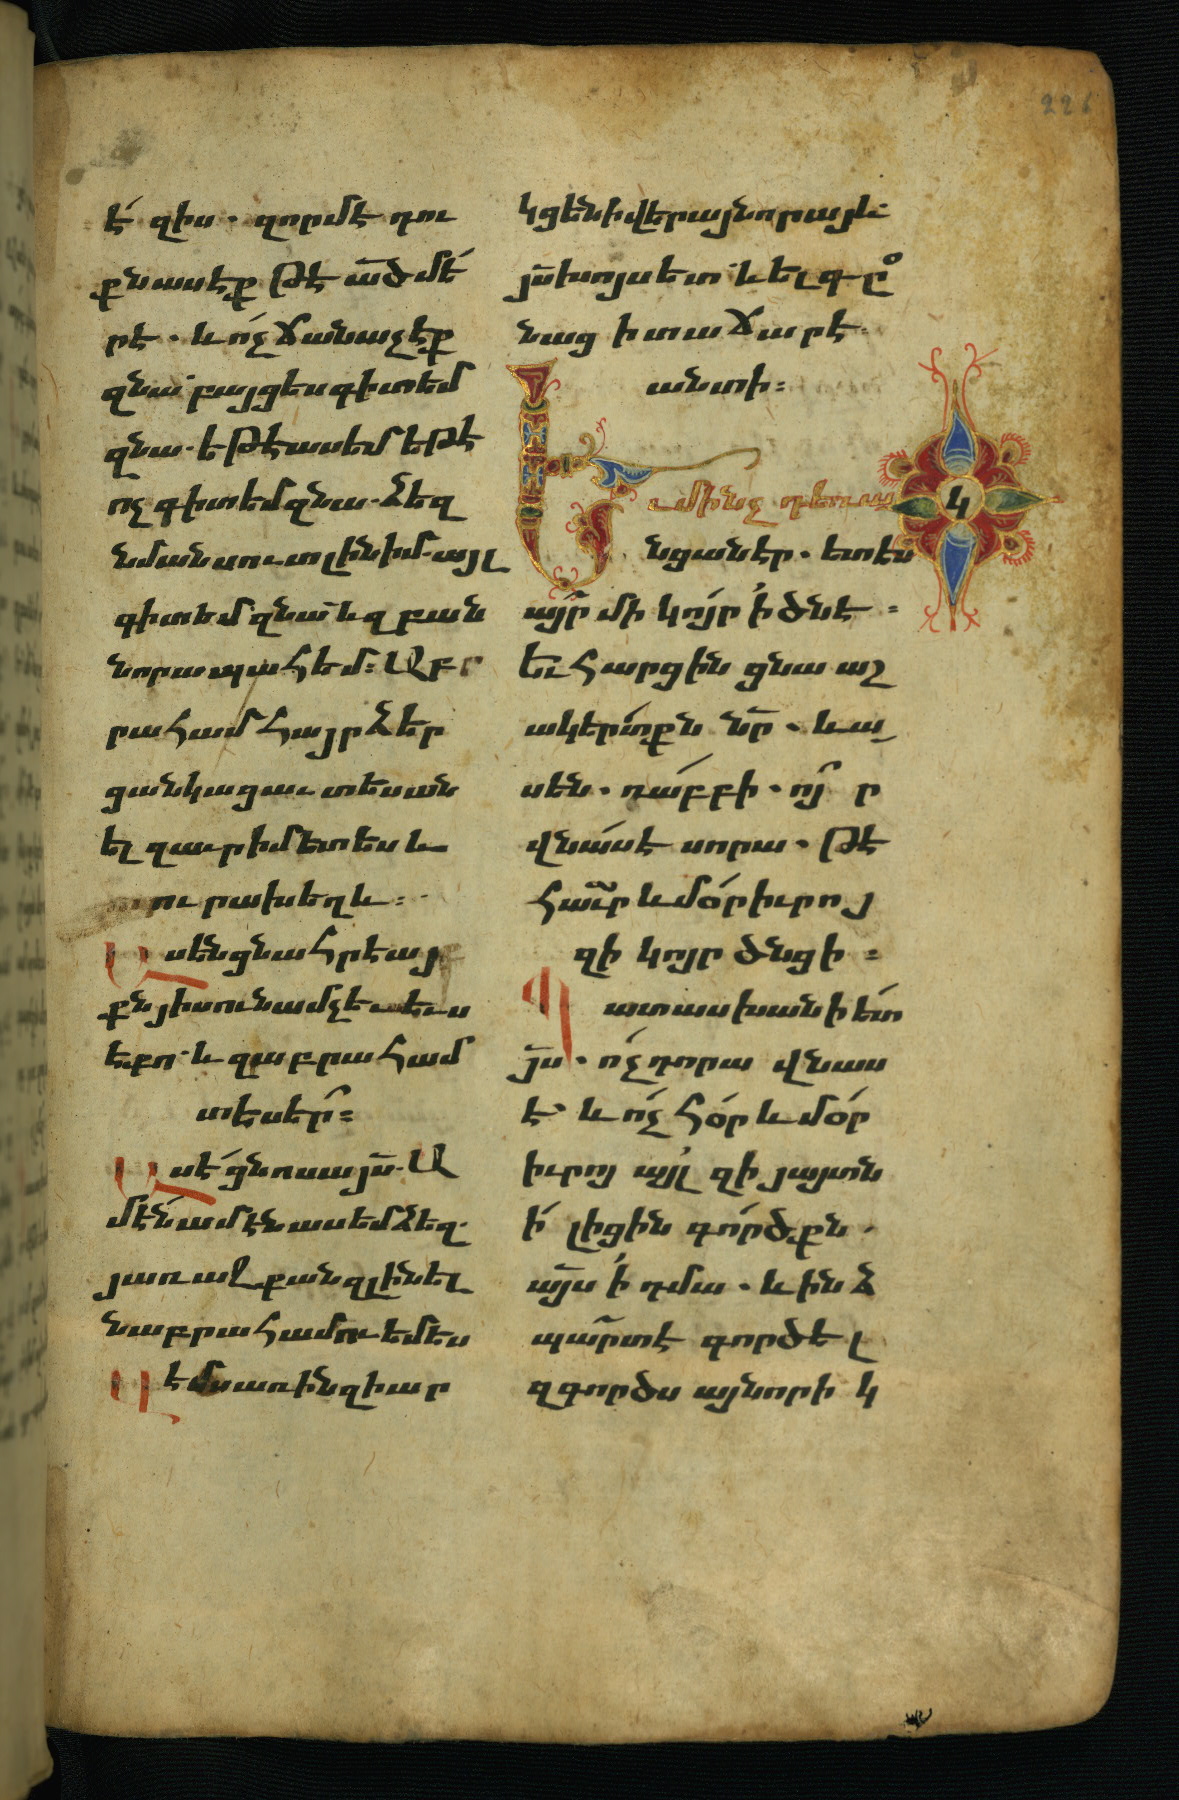 է զիս. զորմէ դու
քն ասէք թէ ած մե
րէ. և ոչ ճանաչէք
զնա. բայց ես գիտեմ
զնա. եթէ ասեմ եթէ
ոչ գիտեմ զնա. ձեզ
նման սուտ լինիմ. այլ
գիտեմ զնա և զբան
նորա պահեմ: Աբր
րահամ հայր ձեր
ցանկացաւ տեսան
ել զաւր իմ ետես և
ուրախեղև:
Ասեն ցնա հրէայ
քն յիսուն ամ չև ես
է քո. և զաբրահամ
տեսեր:
Ասէ ցնոսա յս. Ա
մէն ամէն ասեմ ձեզ.
յառաջ քան զլինել
նաբրահամու եմ ես
Առին զի ար
կցեն ի վերայ նորա. և
յս խոյս ետ. և ել գը
նաց ի տաճարէ
անտի:
Եւ մինչ դեռ ա
նցանէր. ետես
կ
այր մի կոյր ի ծնէ:
Եւ հարցին ցնա աշ
ակերտքն նր. և ա
սեն. ռաբբի. ոյ ը
վնաս է սորա. թէ
հաւր և մօր իւրոյ
զի կոյր ծնցի:
Պատասխանի ետ
յս. ոչ դորա վնաս
է և ոչ հօր և մօր
իւրոյ այլ զի յայտն
ի լիցին գործքն
այս ի դմա. և ինձ
պարտ է գործել
զգործս այնորիկ
226